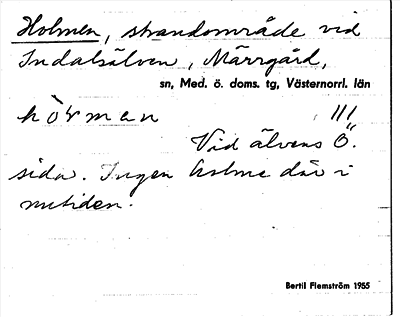 Holmen, strandområde vid
Indalsälven, Märrgård,
sn, Med. ö. doms. tg, Västernorrl. län
hòrman ///
Vid älvens Ö.
sida. Ingen holme där i
nutiden.
Bertil Flemström 1955